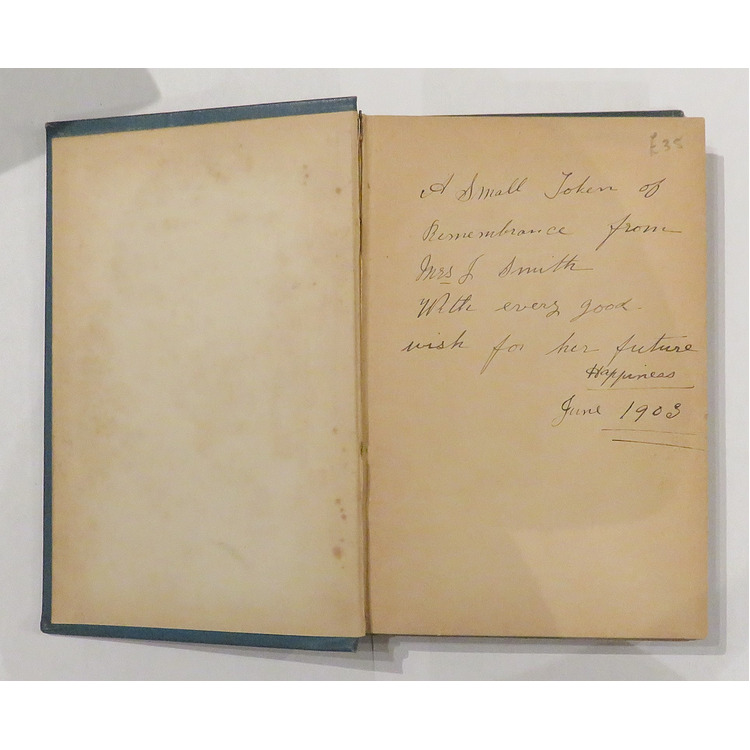 £35
A Small Token of
Remembrance from
Mrs J Smith
With every good
wish for her future
Happiness
June 1903